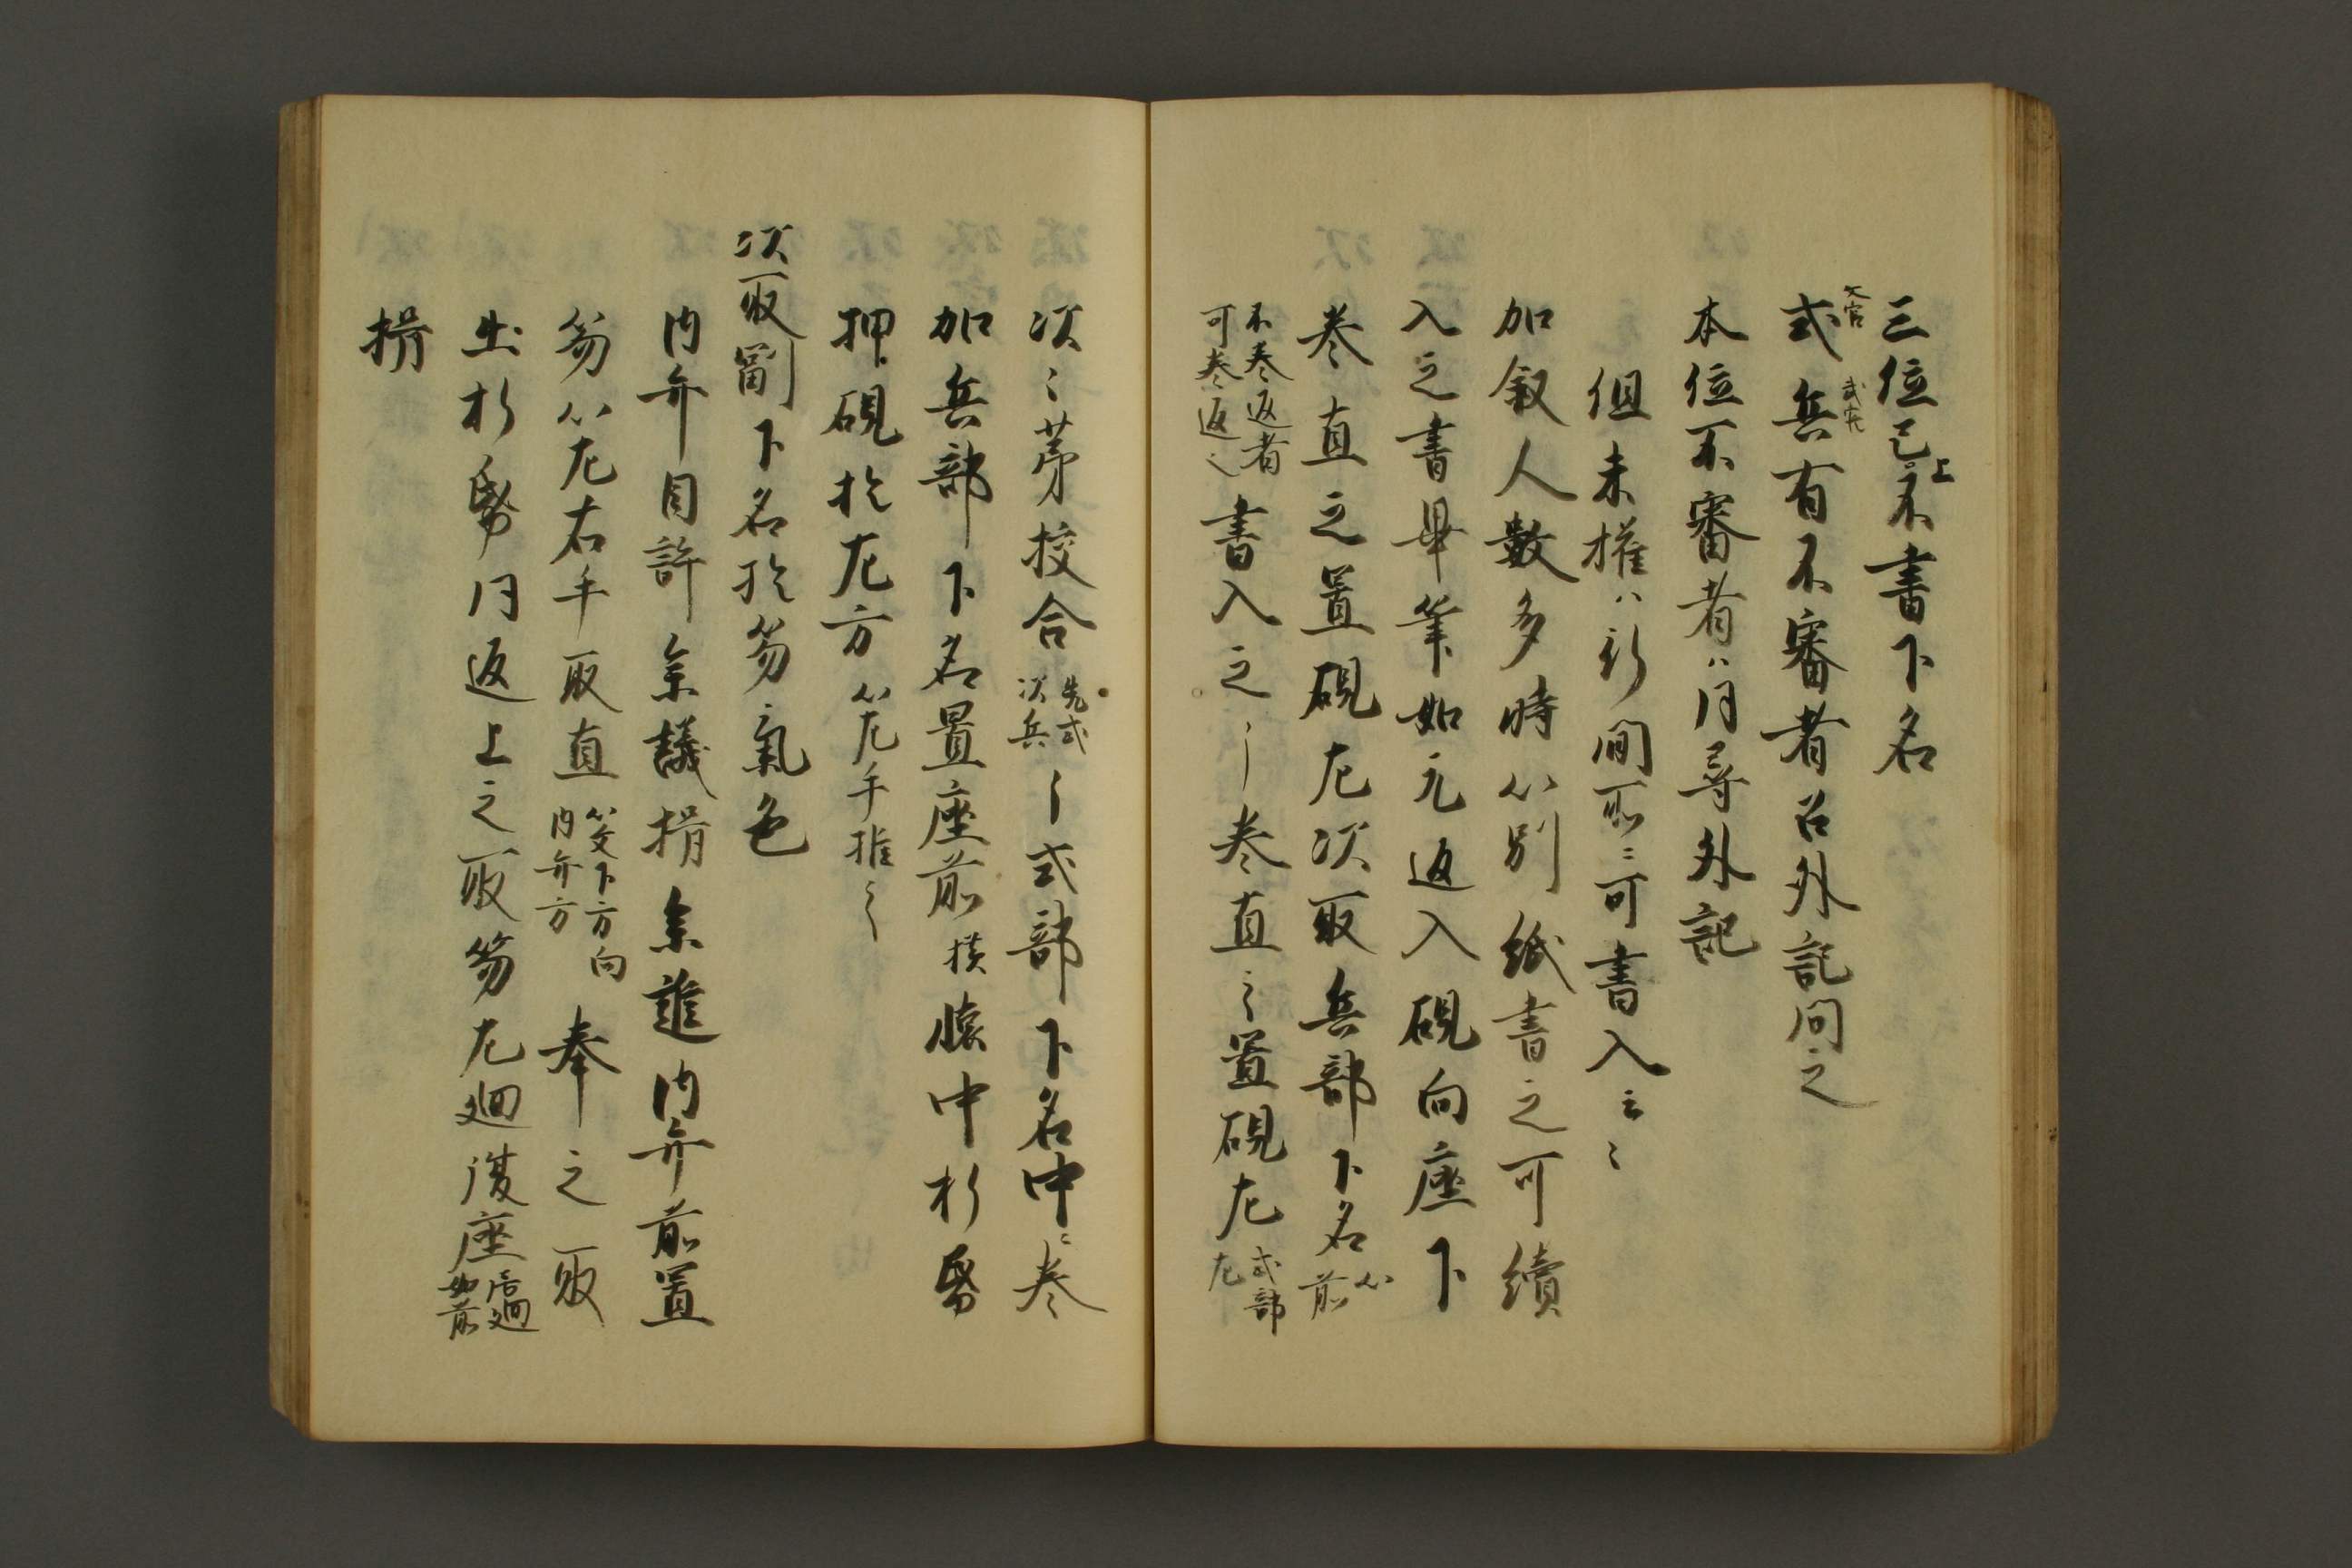 三位已上不書下名
式文官兵武官有不審者召外記問之
本位不審者ハ同尋外記
但未権ハ行間所ニ可書入云々
加叙人数多時以別紙書之可続
入之書畢筆如元返入硯向座下
巻直之置硯左次取兵部下名以前
不巻返者可巻返之書入之〻巻直〻置硯左式部左
次〻第校合先式次兵〻式部下名中ニ巻
加兵部下名置座前横懐中杉
押硯於左方以左手推之
次取副下名於笏気色
内弁目許参議揖参進内弁前置
笏以左右手取直以文下方向内弁方奉之取
出杉 同返上之取笏左廻復座居廻如前
揖